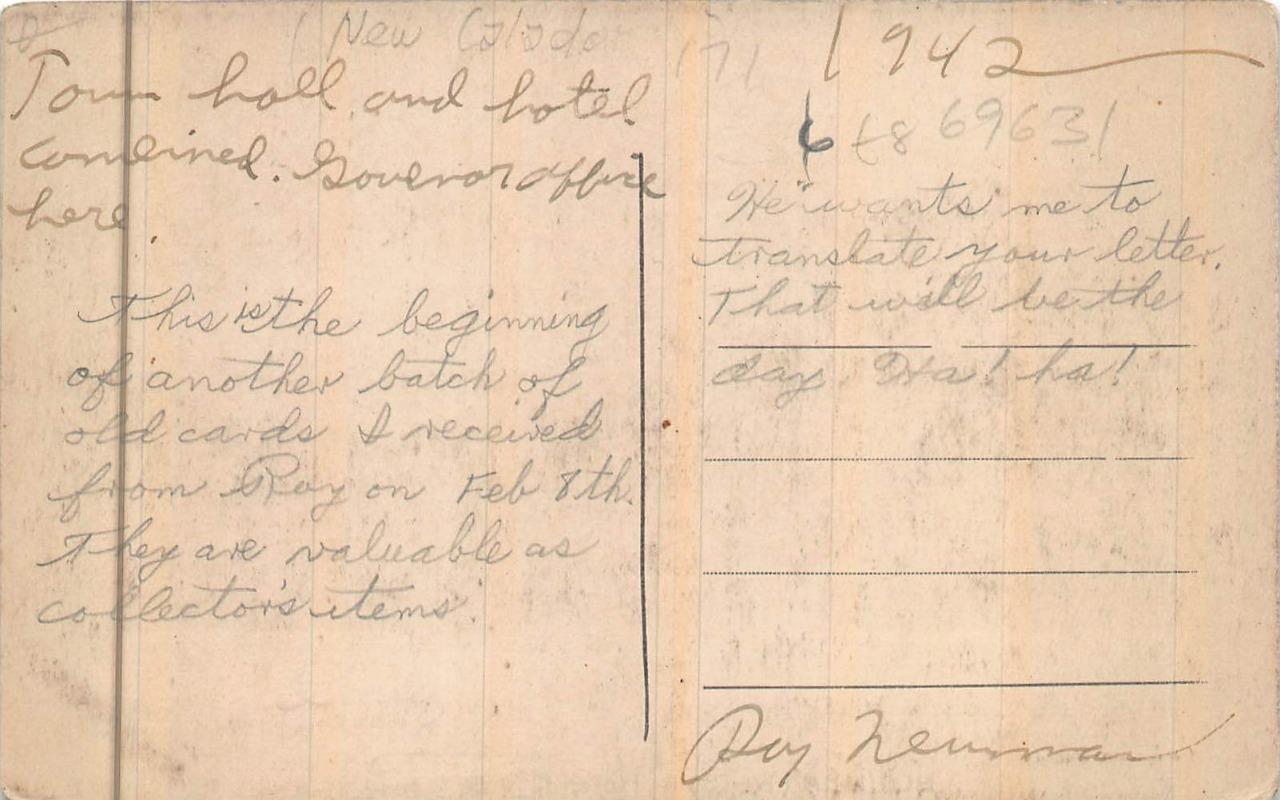 New
Town hall and hotel
combined. Govenor office
here.
This is the beginning
of another batch of
old cards I received
from Roy on Feb 8th.
They are valuable as
collector's items.
1942
69631
He wants me to
translate your letter.
That will be the
day Ha! ha!
Roy Newman